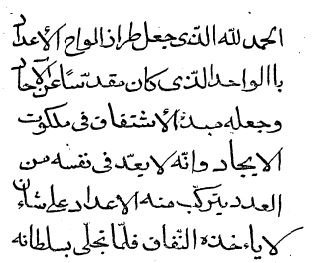 الحمد لله الذی جعل طراز الواح الأعداد
باالواحد الذی کان مقدّسًا عن الآحاد
و جعله مبدء الأشتقاق فی ملکوت
الایجاد و انّه لا یعدّ فی نفسه من
العدد یترکب منه الاعداد علی شأن
لا یاٴخذه النّفاق فلمّا تجلّی بسلطانه